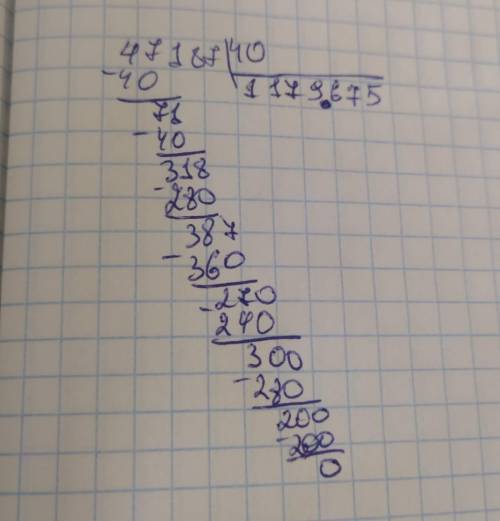 47187 40
-40 1179.675
71
-40
318
-280
387
-360
270
-240
300
-280
200
-200
0